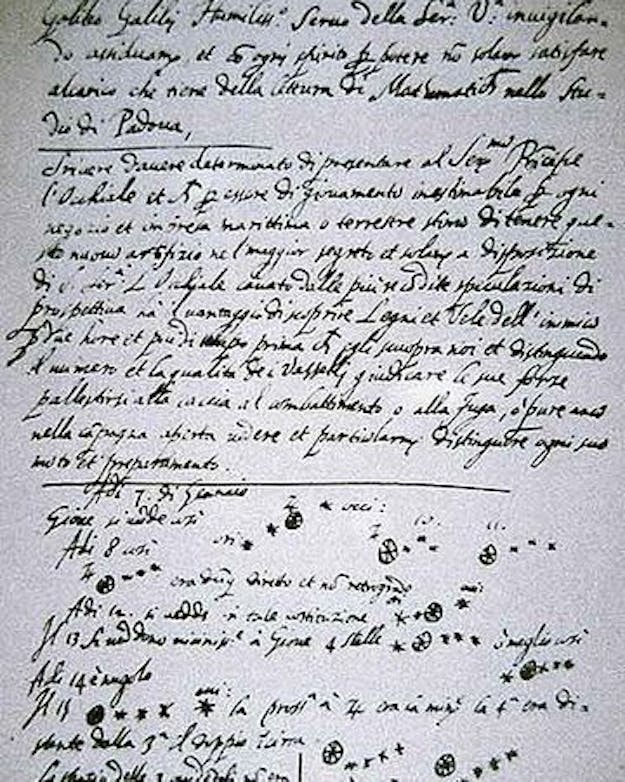 Galileo Galilej Humiliss.º Servo della Ser.ª V.ª invigilan-
do assiduamᵉ, et cõ ogni spirito ꝑ potere nõ solamᵉ satisfare
al carico che tiene della lettura di Mathematicħ nello Stu-
dio di Padova,
Scrivere d'avere determinato di presentare al Serᵐᵒ Pricipe
l'Occhiale et ꝑ essere di giovamento inestimabile ꝑ ogni
negocio et impresa marittima o terrestre stimo di tenere que-
sto nuovo artifizio nel maggior segreto et solamᵉ a disposizione
di V. Ser.ª L'Occhiale cavato dalle più recõdite speculazioni di
prospettiva hà il vantaggio di scoprire Legni et Vele dell' inimico
ꝑ due hore et più di tempo prima cħ egli scuopra noi et distinguendo
il numero et la qualità de i Vasselli giudicare le sue forze
pallestirsi alla caccia al combattimento o alla fuga, o pure anco
nella cãpagna aperta vedere et particularmᵉ distinguere ogni suo
moto et preparamento.
Adi 7. di Gennaio
Giove si vedde così occi:
Adi 8 così ori: 10. 11.
era dũq direto et nõ retrogrado
Adi 12. si vedde in tale costituzione
Il 13 si veddono minissᵉ à Giove 4 stelle ò meglio così
Adi 14 è nugolo
Il 15 occi: la prossª à ♃ era la minʳ la 4ª era di-
stante dalla 3ª il doppio